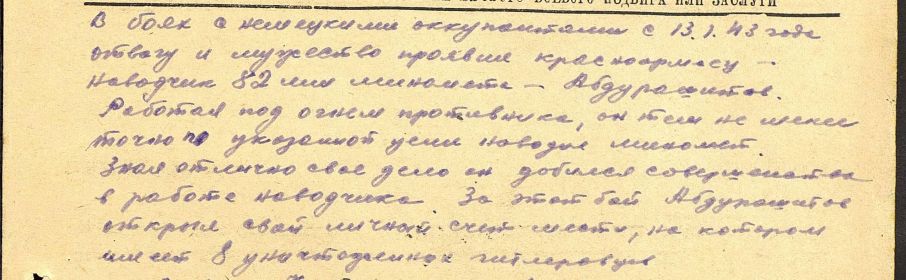 БОЕВОГО ПОДВИГА ИЛИ ЗАСЛУГИ
В боях с немецкими оккупантами с 13.1.43 года
отвагу и мужество проявил красноармеец –
наводчик 82 мм миномета – Абдурашитов.
Работая под огнем противника, он тем не менее
точно по указанной цели наводил миномет.
Зная отлично свое дело он добился совершенства
в работе наводчика За этот бой Абдурашитов
открыл свой личный счет мести, на котором
имеет 8 уничтоженных гитлеровцев